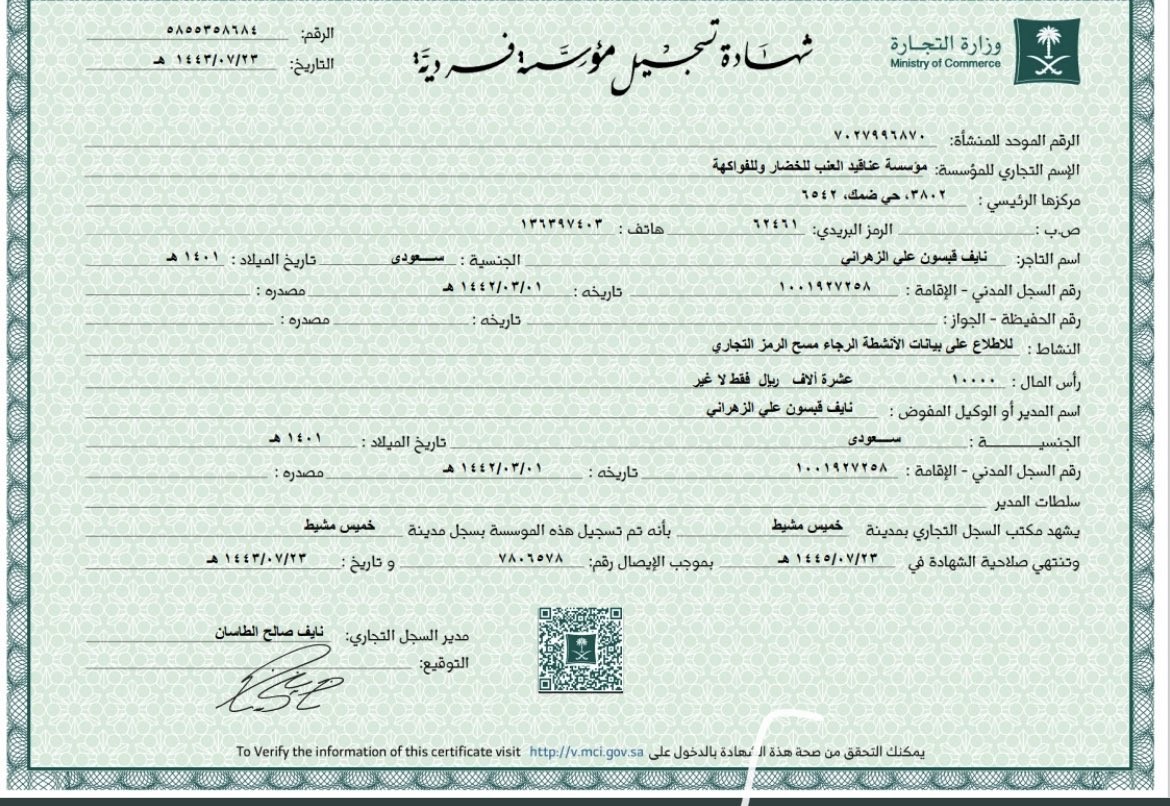 وزارة التجارة
Ministry of Commerce
شهادة تسجيل مؤسسة فردية
الرقم: ٥٨٥٥٣٥٨٦٨٤
التاريخ: ١٤٤٣/٠٧/٢٣ هـ
الرقم الموحد للمنشأة: ٧٠٢٧٩٩٦٨٧٠
الإسم التجاري للمؤسسة: مؤسسة عناقيد العنب للخضار وللفواكهة
مركزها الرئيسي : ٣٨٠٢، حي ضمك، ٦٥٤٢
ص.ب : الرمز البريدي: ٦٢٤٦١ هاتف : ١٣٦٣٩٧٤٠٣
اسم التاجر: نايف قبسون علي الزهراني الجنسية : سعودى تاريخ الميلاد : ١٤٠١ هـ
رقم السجل المدني - الإقامة : ١٠٠١٩٢٧٢٥٨ تاريخه : ١٤٤٢/٠٣/٠١ هـ مصدره :
رقم الحفيظة - الجواز : تاريخه : مصدره :
النشاط : للاطلاع على بيانات الأنشطة الرجاء مسح الرمز التجاري
رأس المال : ١٠٠٠٠ عشرة آلاف ريال فقط لا غير
اسم المدير أو الوكيل المفوض : نايف قبسون علي الزهراني
الجنسيـــــة : سعودى تاريخ الميلاد : ١٤٠١ هـ
رقم السجل المدني - الإقامة : ١٠٠١٩٢٧٢٥٨ تاريخه : ١٤٤٢/٠٣/٠١ هـ مصدره :
سلطات المدير
يشهد مكتب السجل التجاري بمدينة خميس مشيط بأنه تم تسجيل هذه الموسسة بسجل مدينة خميس مشيط
وتنتهي صلاحية الشهادة في ١٤٤٥/٠٧/٢٣ هـ بموجب الإيصال رقم: ٧٨٠٦٥٧٨ و تاريخ : ١٤٤٣/٠٧/٢٣ هـ
مدير السجل التجاري: نايف صالح الطاسان
التوقيع:
يمكنك التحقق من صحة هذة الشهادة بالدخول على http://v.mci.gov.sa To Verify the information of this certificate visit